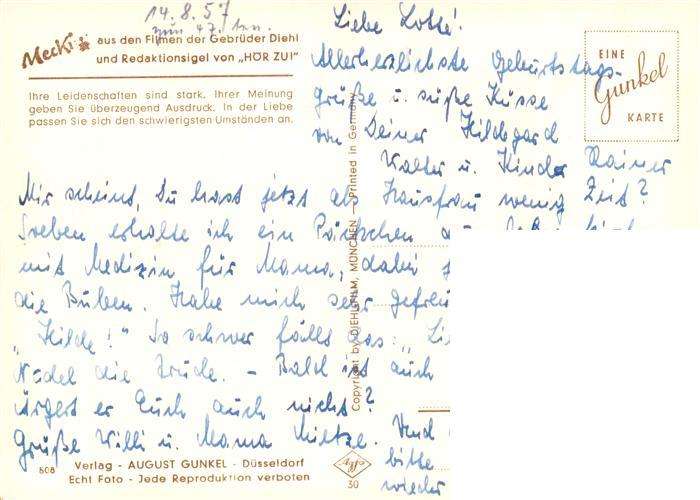 14.8.57
zum 47. ten.
Mecki aus den Filmen der Gebrüder Diehl
und Redaktionsigel von „HÖR ZU!"
Ihre Leidenschaften sind stark. Ihrer Meinung
geben Sie überzeugend Ausdruck. In der Liebe
passen Sie sich den schwierigsten Umständen an.
EINE
Gunkel
KARTE
Liebe Lotte!
Allerherzlichste Geburtstags-
grüße u. süße Küsse
von Deiner Hildegard
Walter u. Kinder Rainer
Mir scheint, Du hast jetzt als Hausfrau wenig Zeit?
Soeben erhalte ich ein Päckchen
mit Medizin für Mama, dabei
die Buben. Habe mich sehr gefreu
„Hilde!" So schwer fälls das: „Li
Nadel die Trude. - Bald ist auch
ärgert er Euch auch nicht?
Grüße Willi u. Mama Mietze. Und
bitte
wieder
Copyright by DIEHLFILM, MÜNCHEN - Printed in Germany
608
Verlag - AUGUST GUNKEL - Düsseldorf
Echt Foto - Jede Reproduktion verboten
Agfa
30